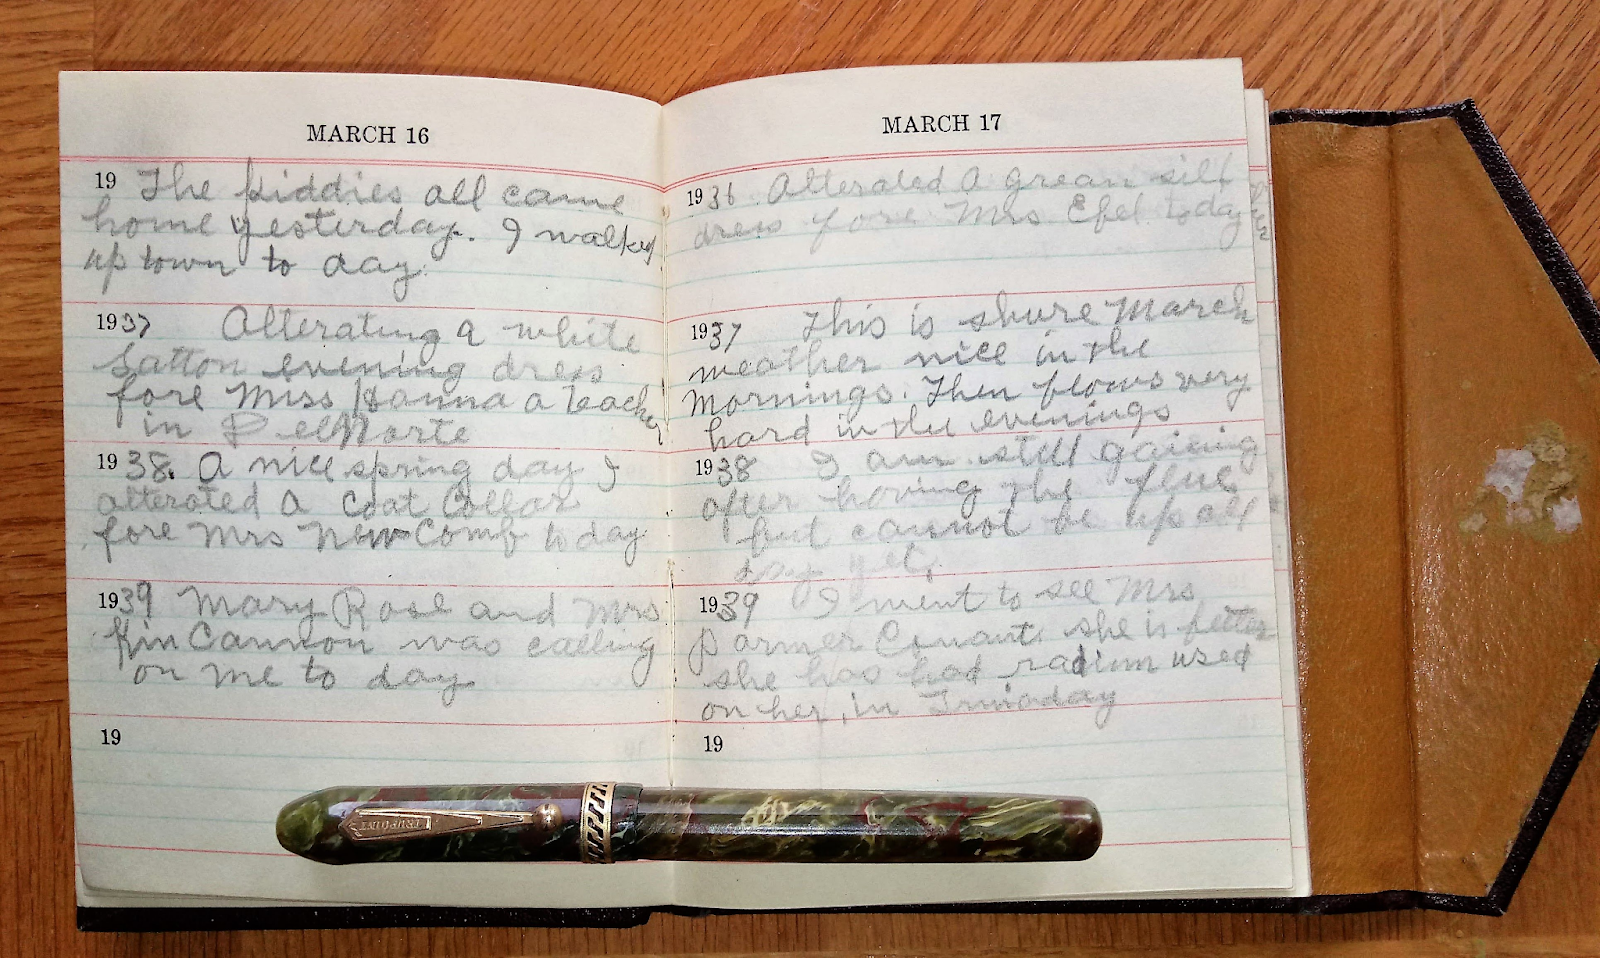 MARCH 16
19 The kiddies all came
home yesterday. I walked
up town to day.
1937 Alterating a white
Satton evening dress
fore Miss Hanna a teacher
in Del Norte
1938. A nice spring day I
alterated a Coat Collar
fore Mrs New Comb to day
1939 Mary Rose and Mrs
Kin Cannon was calling
on me to day
19
MARCH 17
1936 Alterated a grean silk
dress fore Mrs Ebel today
1937 This is shure March
weather nice in the
Mornings. Then blows very
hard in the evenings
1938 I am still gaining
after having the flue
but cannot be up all
day yet.
1939 I went to see Mrs
Parmer Conant she is better
she has had radium used
on her, in
19
TRUPOINT